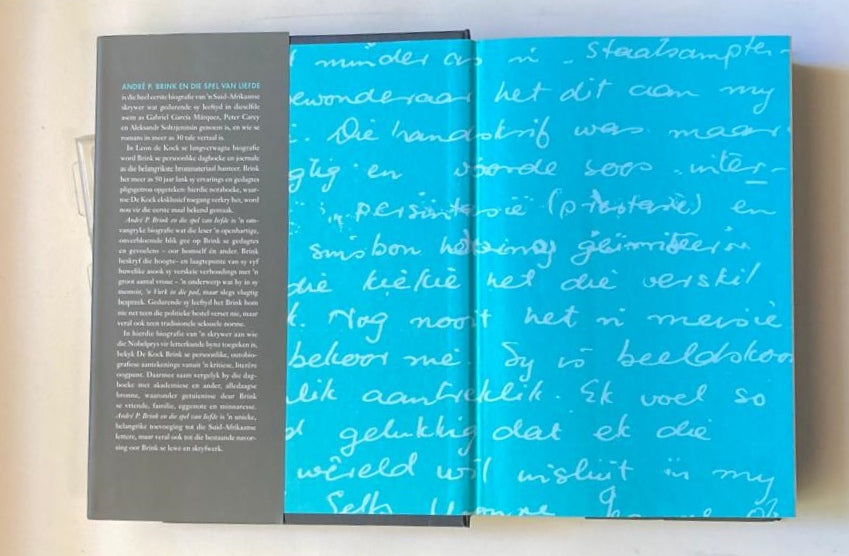 ANDRÉ P. BRINK EN DIE SPEL VAN LIEFDE
is die heel eerste biografie van 'n Suid-Afrikaanse
skrywer wat gedurende sy leeftyd in dieselfde
asem as Gabriel García Márquez, Peter Carey
en Aleksandr Solzjenitsin genoem is, en wie se
romans in meer as 30 tale vertaal is.
In Leon de Kock se langverwagte biografie
word Brink se persoonlike dagboeke en joernale
as die belangrikste bronmateriaal hanteer. Brink
het meer as 50 jaar lank sy ervarings en gedagtes
pligsgetrou opgeteken: hierdie notaboeke, waar-
toe De Kock eksklusief toegang verkry het, word
nou vir die eerste maal bekend gemaak.
André P. Brink en die spel van liefde is 'n om-
vangryke biografie wat die leser 'n openhartige,
onverbloemde blik gee op Brink se gedagtes
en gevoelens – oor homself én ander. Brink
beskryf die hoogte- en laagtepunte van sy vyf
huwelike asook sy verskeie verhoudings met 'n
groot aantal vroue – 'n onderwerp wat hy in sy
memoir, 'n Vurk in die pad, maar slegs vlugtig
bespreek. Gedurende sy leeftyd het Brink hom
nie net teen die politieke bestel verset nie, maar
veral ook teen tradisionele seksuele norme.
In hierdie biografie van 'n skrywer aan wie
die Nobelprys vir letterkunde byna toegeken is,
bekyk De Kock Brink se persoonlike, outobio-
grafiese aantekeninge vanuit 'n kritiese, literêre
oogpunt. Daarmee saam vergelyk hy die dag-
boeke met akademiese en ander, alledaagse
bronne, waaronder getuienisse deur Brink
se vriende, familie, eggenote en minnaresse.
André P. Brink en die spel van liefde is 'n unieke,
belangrike toevoeging tot die Suid-Afrikaanse
lettere, maar veral ook tot die bestaande navor-
sing oor Brink se lewe en skryfwerk.
minder as 'n staatsampte-
ewonderaar het dit aan my
Die handskrif was maar
gtig en woorde soos inter-
(prostasie) en
smsbon
die kiekie net die verskil
. Nog nooit het 'n meisie
bekoor nie. Sy is beeldskoon
lik aantreklik. Ek voel so
gelukkig dat ek die
wêreld wil uitsluit in my